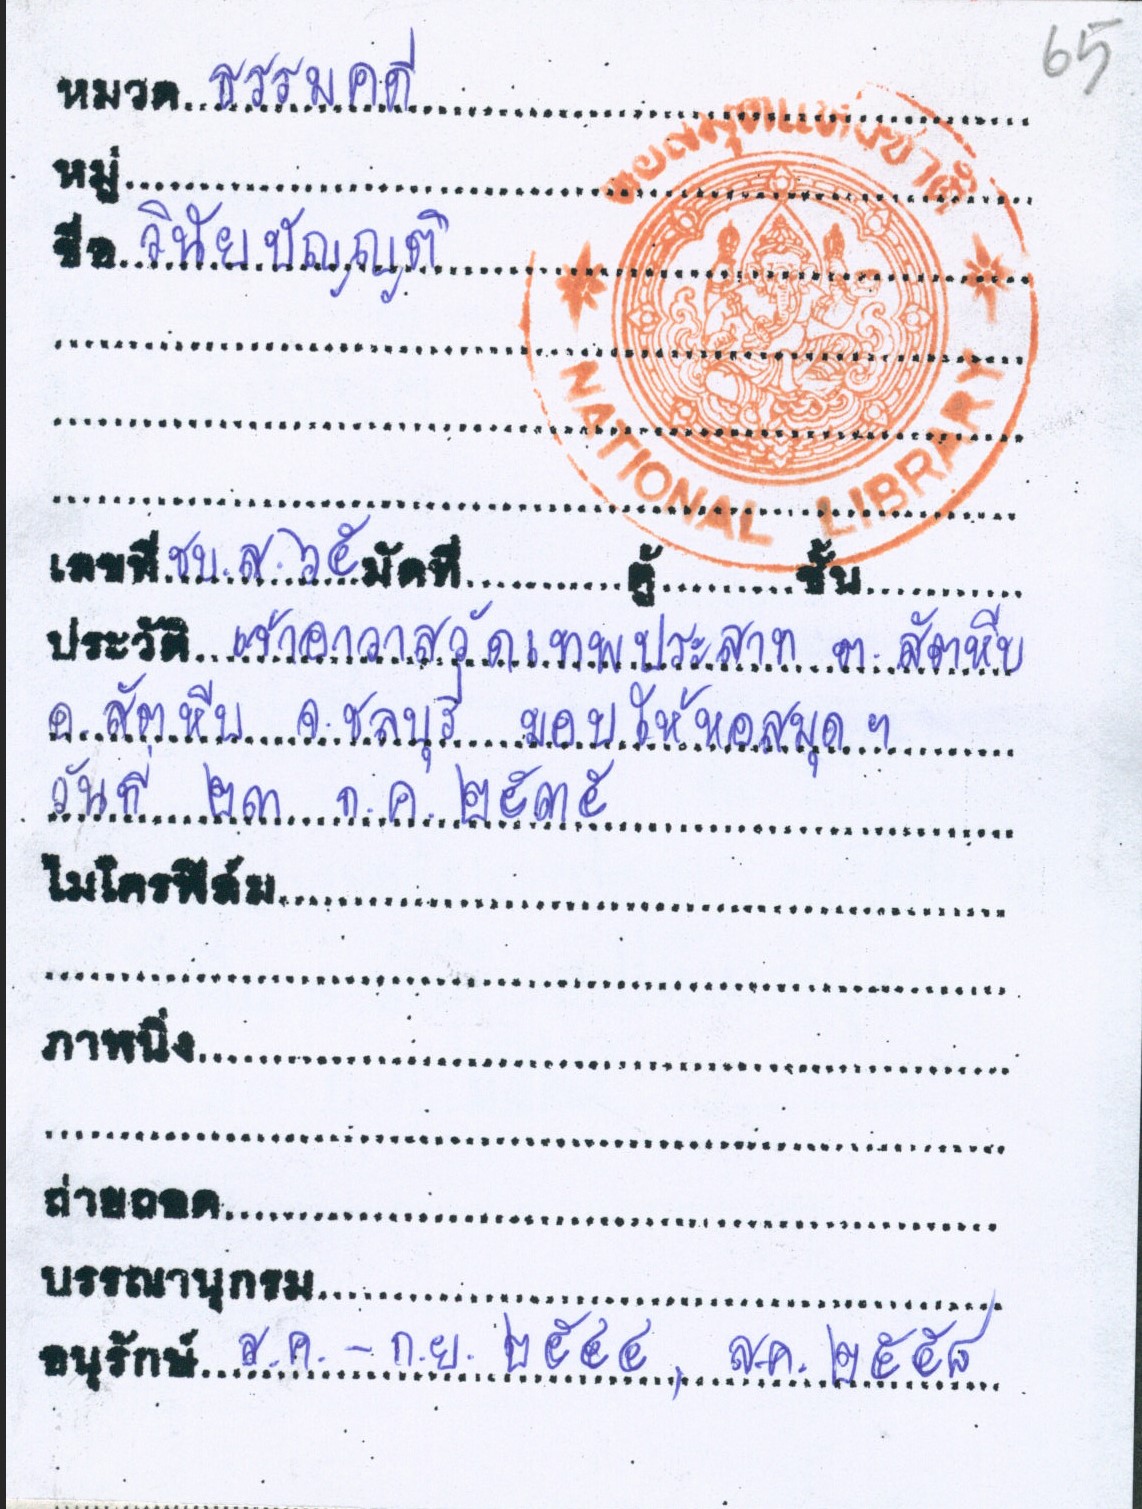 65
หมวด ธรรมคดี
หอสมุดแห่งชาติ
หมู่
ชื่อ วินัยบัญญัติ
NATIONAL LIBRARY
เลขที่ ชบ.ส.๖๕ มัดที่ ตู้ ชั้น
ประวัติ เจ้าอาวาสวัดเทพประสาท ต. สัตหีบ
อ. สัตหีบ จ. ชลบุรี มอบให้หอสมุด ฯ
วันที่ ๒๓ ก.ค. ๒๕๓๕
ไมโครฟิล์ม
ภาพนิ่ง
ถ่ายถอด
บรรณานุกรม
อนุรักษ์ ส.ค. - ก.ย. ๒๕๔๔, ส.ค. ๒๕๕๘